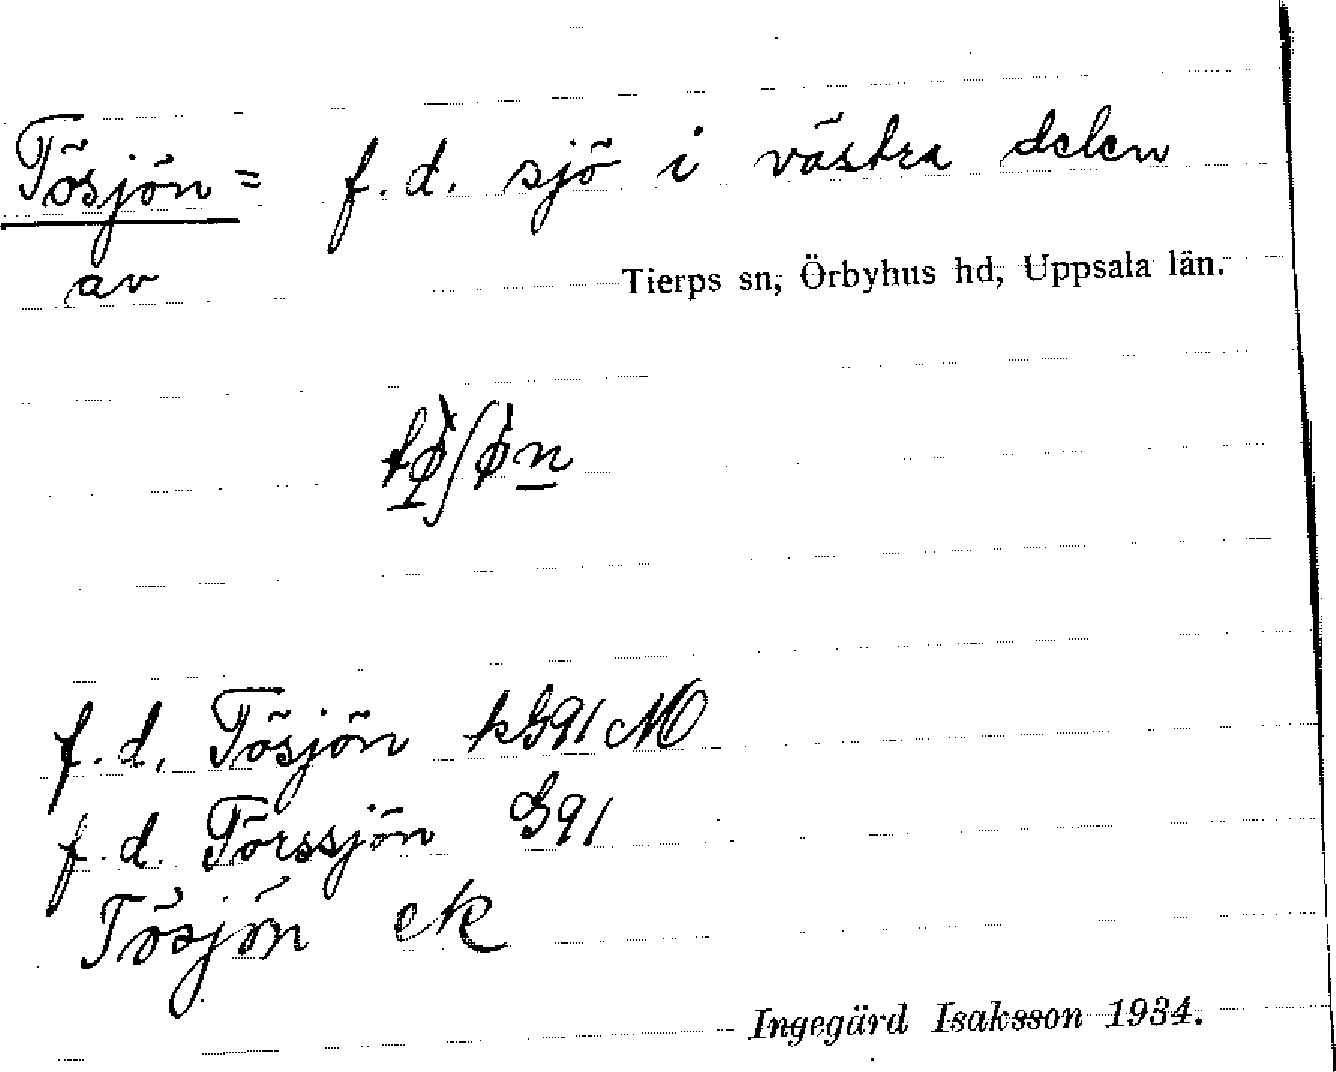 Tösjön = f. d. sjö i västra delen
av Tierps sn, Örbyhus hd, Uppsala län.
f. d. Tösjön kG91 M
f. d. Törssjön G91
Tösjön ek
Ingegärd Isaksson 1934.